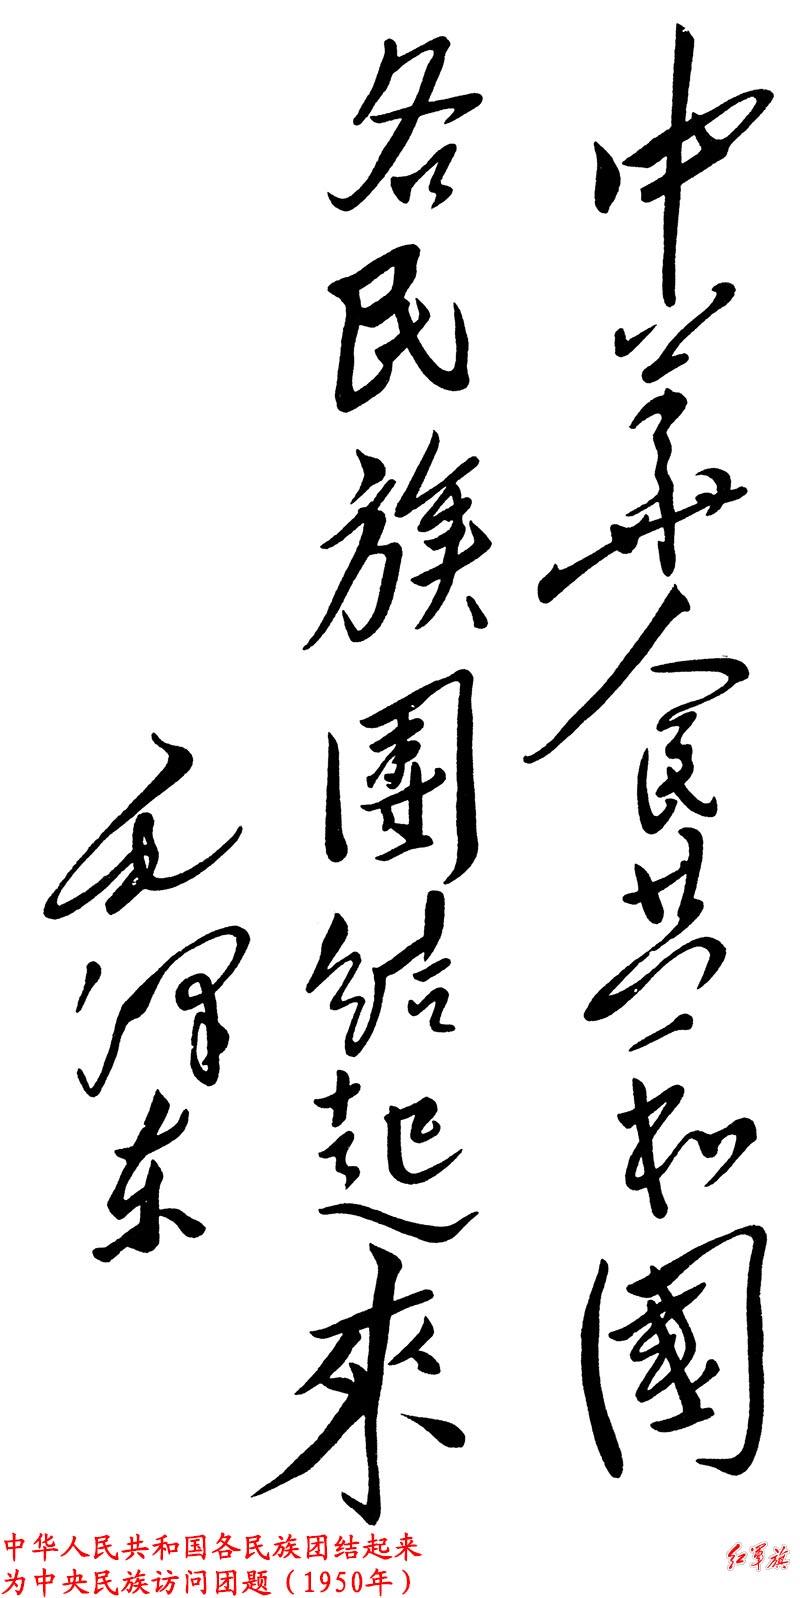 中華人民共和國
各民族團結起來
毛澤东
中华人民共和国各民族团结起来
为中央民族访问团题（1950年）
红军旗